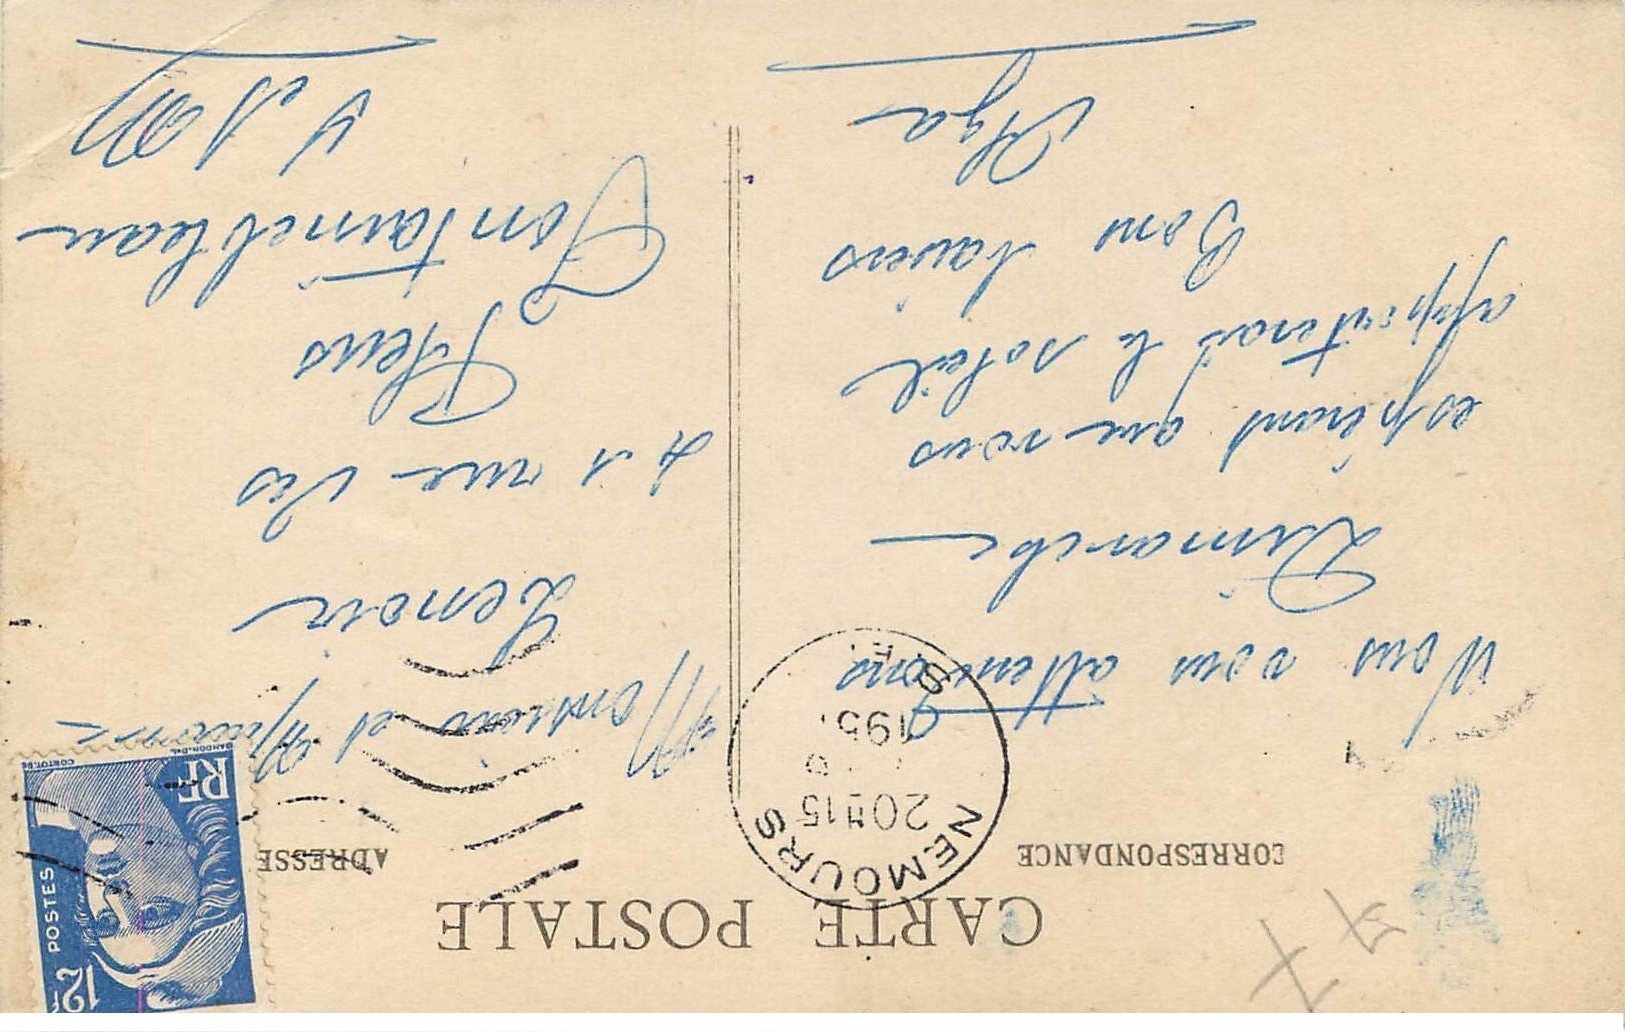 CARTE POSTALE
CORRESPONDANCE
ADRESSE
Nous vous attendons
Dimanche
espérant que vous
apporterais le soleil
Bons baisers
Monsieur et Madame
Lenoir
41 rue des
Pleus
Fontainebleau
S et M
NEMOURS
20H15
195
S. ET
12F
POSTES
RF
GANDON-DEL
CORTOT.SC